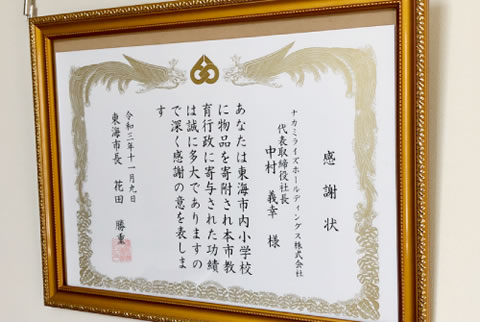 感謝状
ナカミライズホールディングス株式会社
代表取締役社長
中村 義幸 様
あなたは東海市内小学校
に物品を寄附され本市教
育行政に寄与された功績
は誠に多大でありますの
で深く感謝の意を表しま
す
令和三年十一月九日
東海市長 花田 勝重